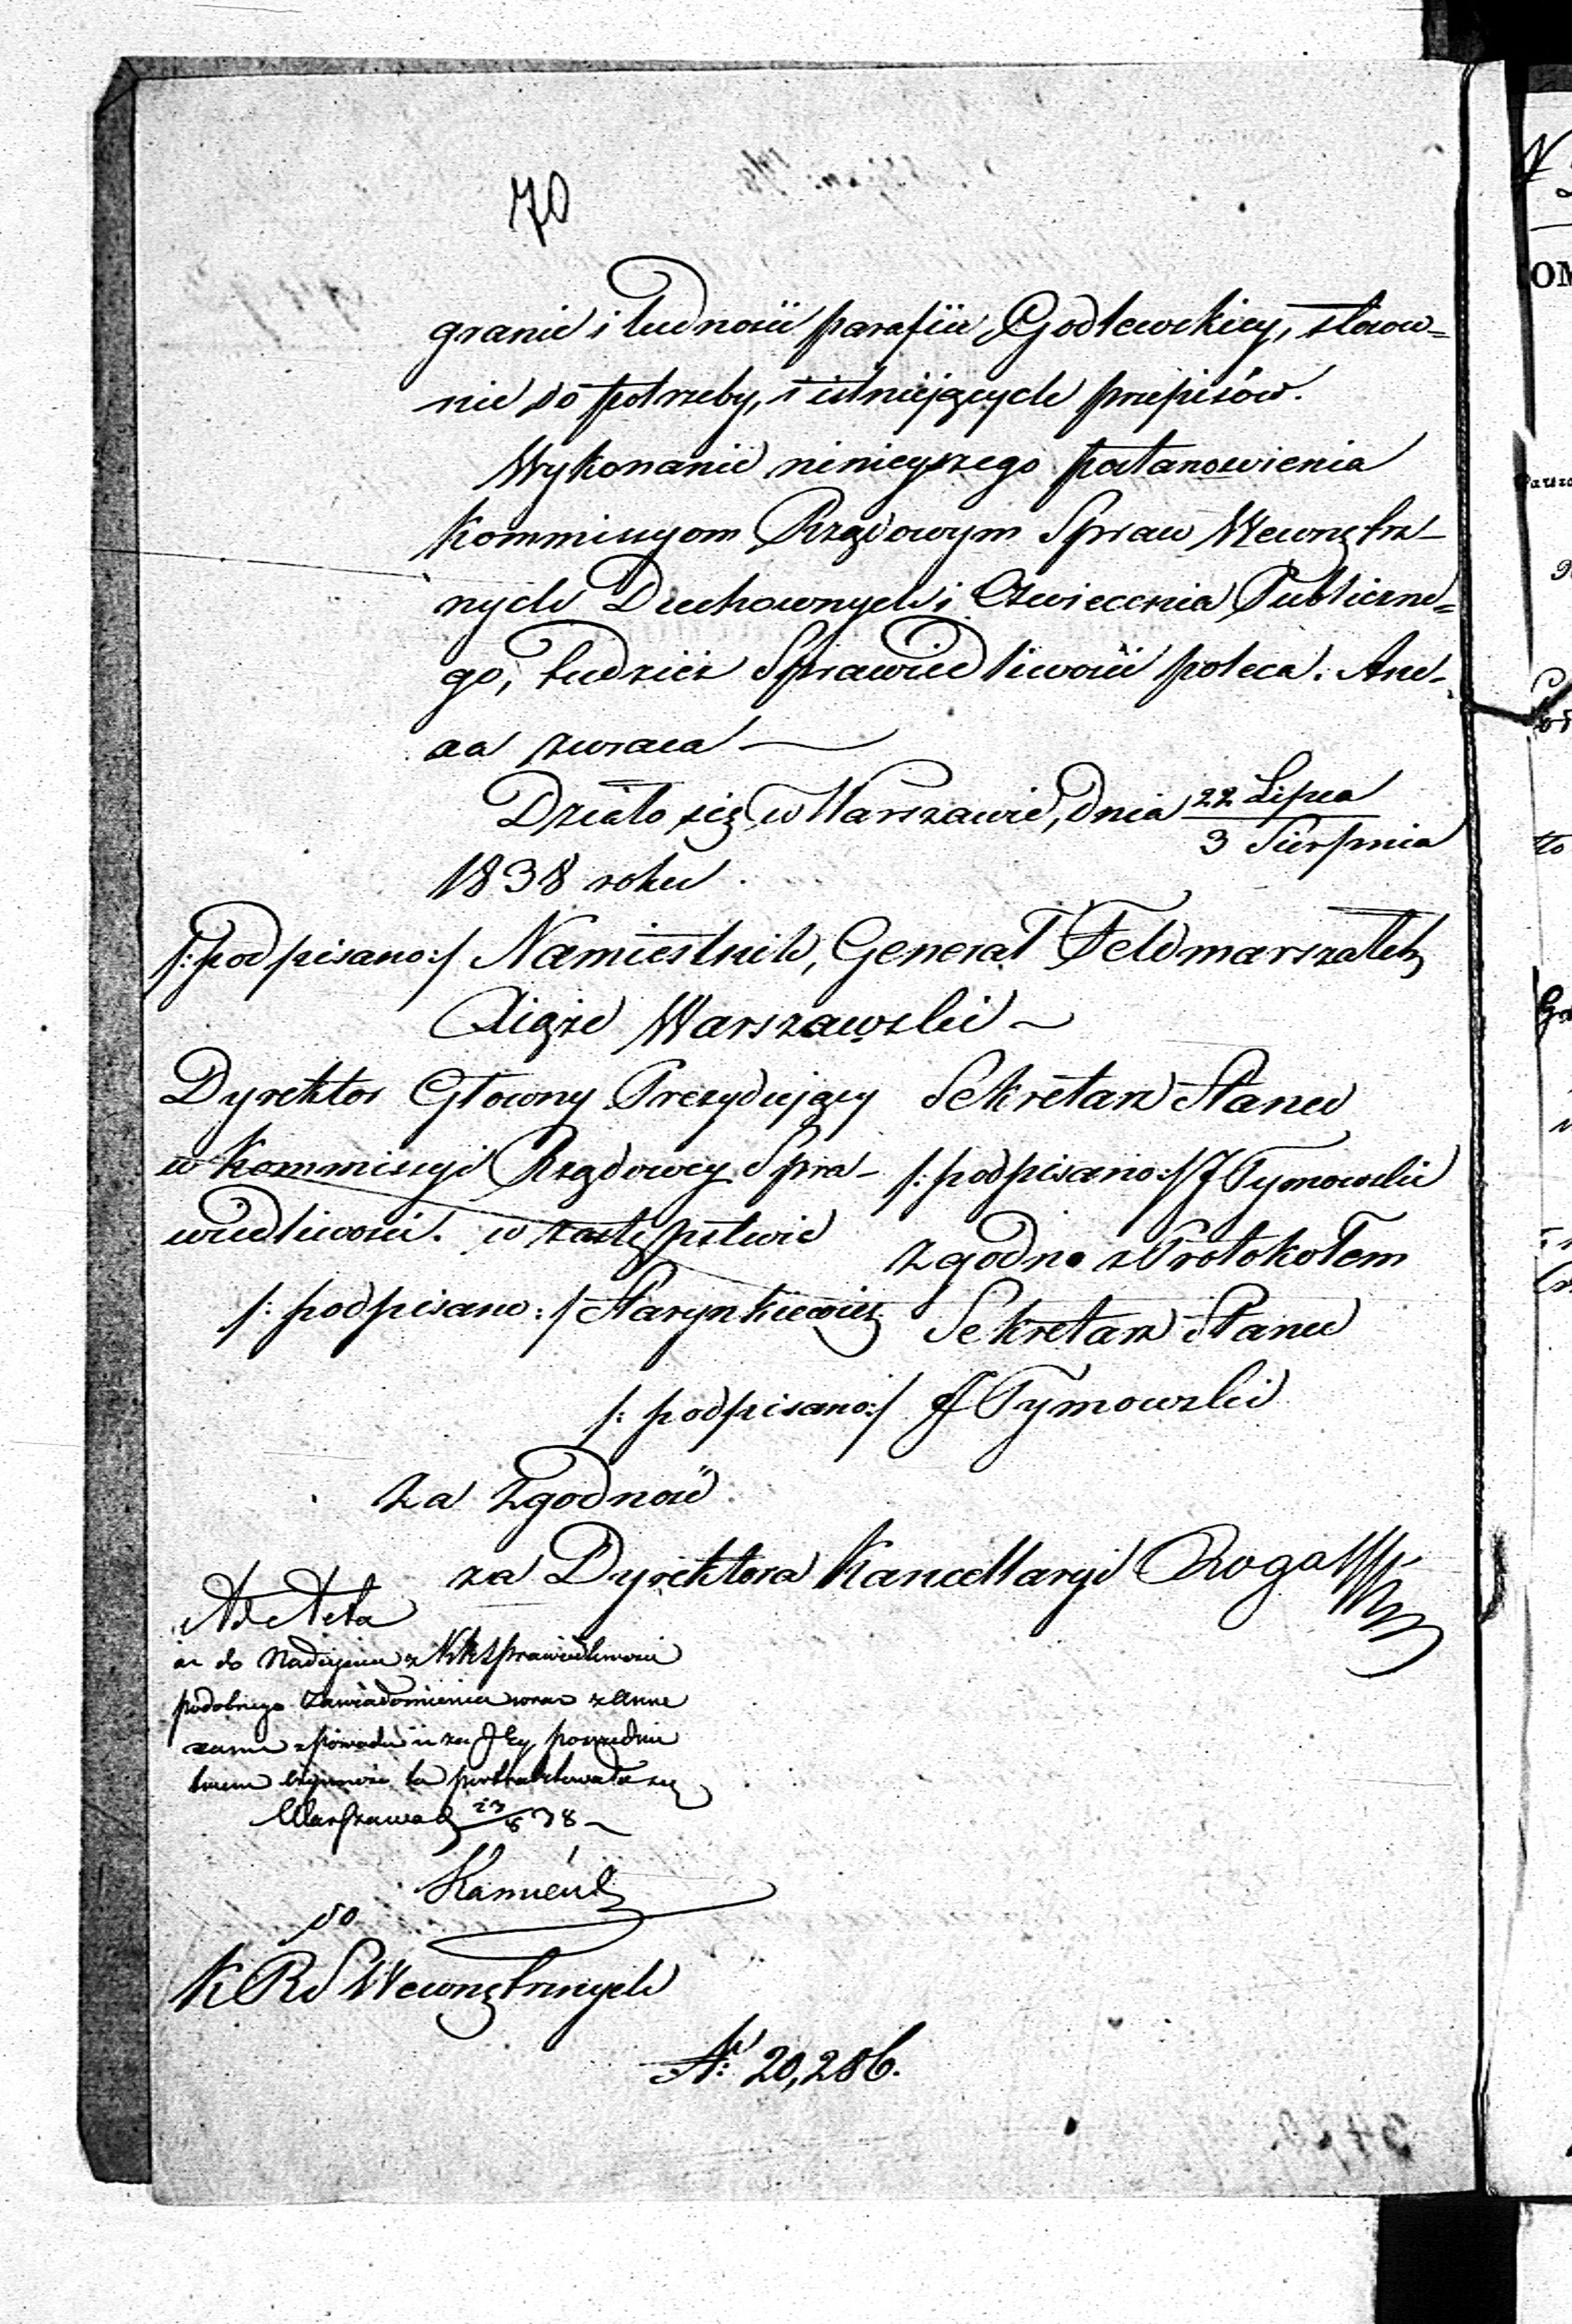 70
granic i ludności parafii Godlewskiey, stosow=
nie do potrzeby, i istniejących przepisów.
Wykonanie ninieyszego postanowienia
Kommissyom Rządowym Spraw Wewnętrz-
nych Duchownych i Oświecenia Publiczne=
go, tudzież Sprawiedliwości poleca. Ane-
xa zwraca —
Działo się w Warszawie, dnia 22 Lipca
3 Sierpnia
1838 roku.
/:podpisano:/ Namiestnik, Generał Feldmarszałek
Xiąże Warszawski —
Dyrektor Główny Prezydujący
w Kommissyi Rządowey Spra-
wiedliwości. w zastępstwie
/:podpisano:/ Starynkiewicz
Sekretarz Stanu
/:podpisano:/ J Tymowski
zgodno z Protokołem
Sekretarz Stanu
/:podpisano:/ J Tymowski
Za Zgodność
za Dyrektora Kancellaryi
Ad Acta
aż do Nadejścia z KRSprawiedliwości
podobnego Zawiadomienia wraz z Anne
xami z powodu iż za Jey pośrednic
twem czynność ta
Warszawa 23/8 38
do
K R S Wewnętrznych
N: 20,286.